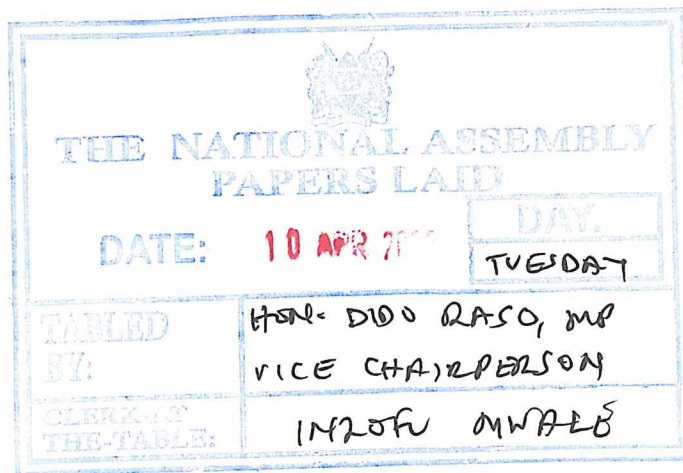 THE NATIONAL ASSEMBLY
PAPERS LAID
DATE: 10 APR
DAY.
TUESDAY
TABLED
BY:
HON. DIDO RASO, MP
VICE CHAIRPERSON
CLERK-AT
THE-TABLE:
INZOFU MWALE